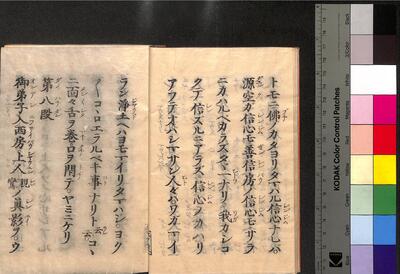 トモニ佛ノカタヨリタマハル信心ナレハ
源空カ信心モ善信房ノ信心モサラ
ニカハルヘカラスタヽヒトツナリ我カシコ
クテ信スルニアラス信心ノカハリ
アフテオハシマサン人々ハワカマイ
ラン淨土ヘハヨモマイリタマハシヨク
〳〵コヽロエラルヘキ事ナリト云云コヽニ
面々舌ヲ巻口ヲ閇テヤミニケリ
第八段
御弟子入西房上人親鸞ノ眞影ヲウ
KODAK Color Control Patches
Blue
Cyan
Green
Yellow
Red
Magenta
White
3/Color
Black